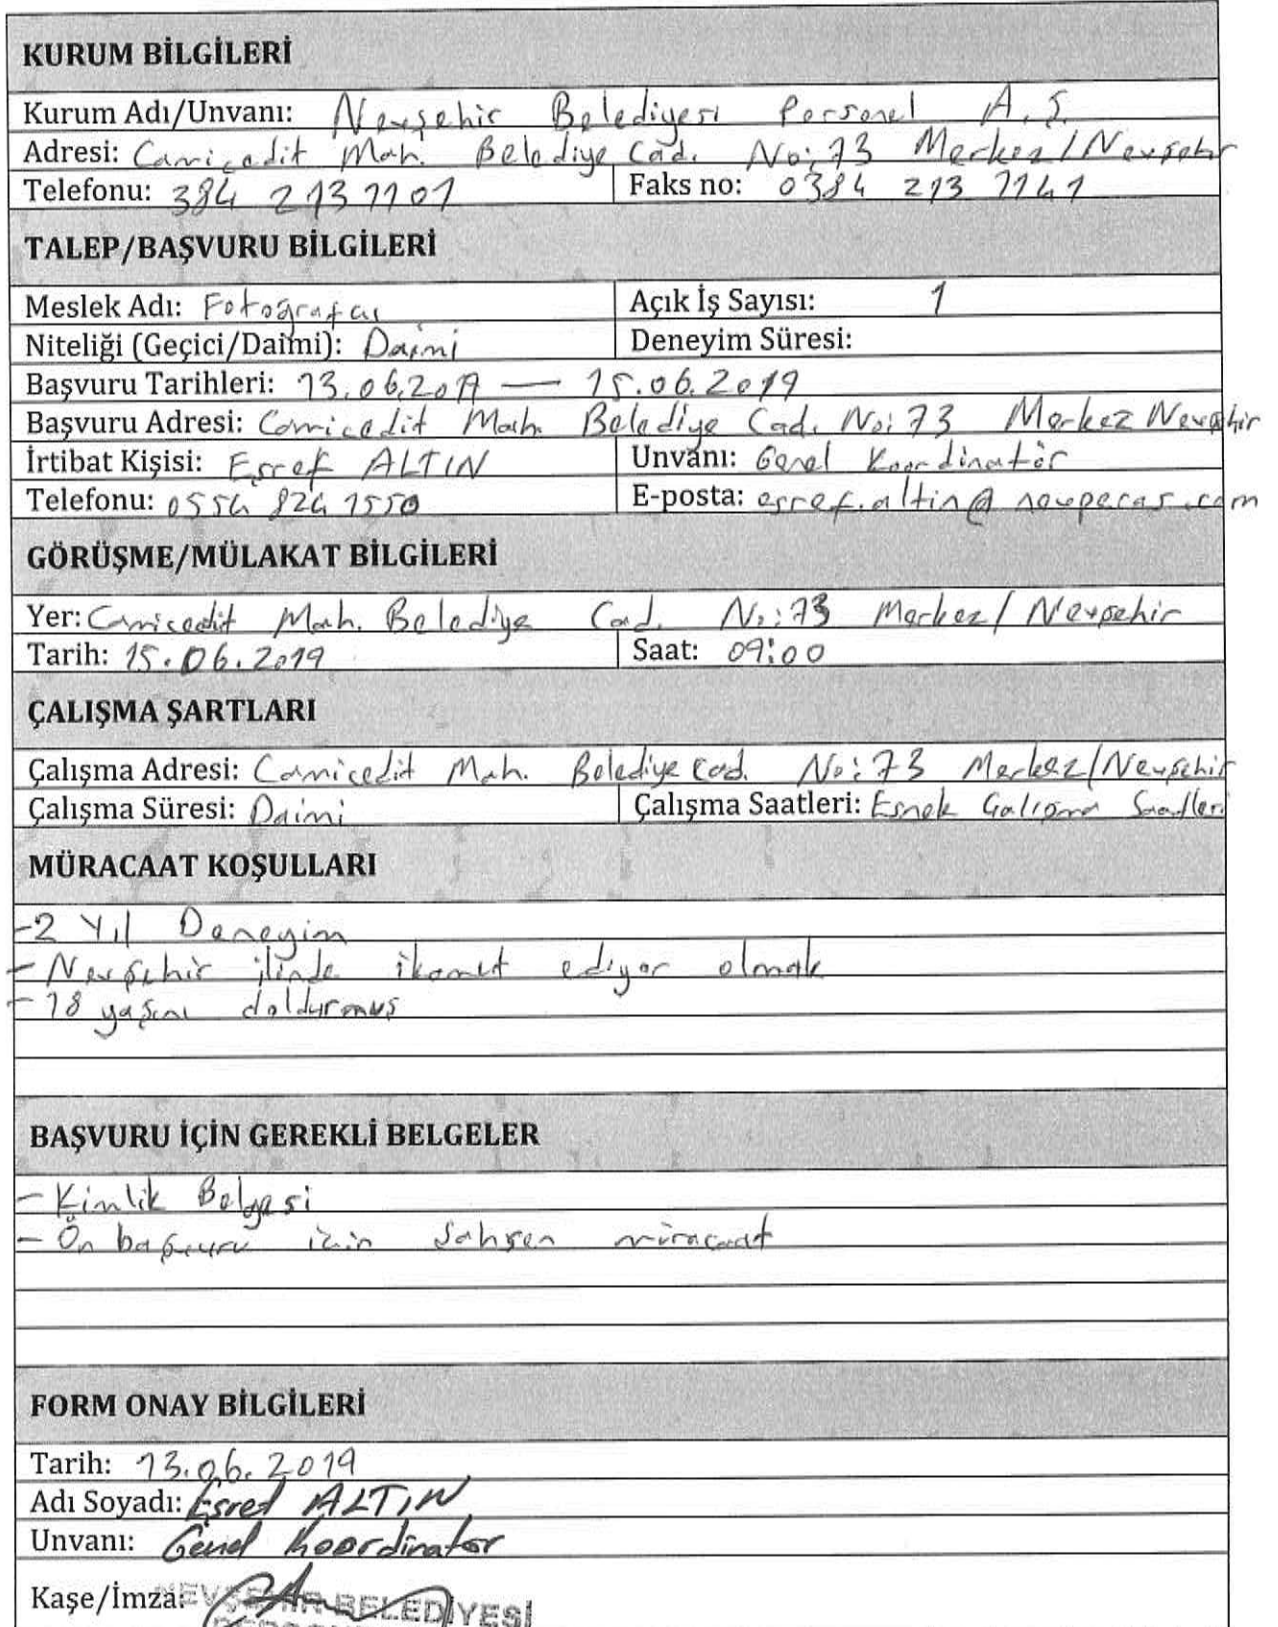 KURUM BİLGİLERİ
Kurum Adı/Unvanı: Nevşehir Belediyesi Personel A.Ş.
Adresi: Camicedit Mah. Belediye Cad. No:73 Merkez/Nevşehir
Telefonu: 384 213 1101 Faks no: 0384 213 1141
TALEP/BAŞVURU BİLGİLERİ
Meslek Adı: Fotoğrafcı Açık İş Sayısı: 1
Niteliği (Geçici/Daimi): Daimi Deneyim Süresi:
Başvuru Tarihleri: 13.06.2019 — 15.06.2019
Başvuru Adresi: Camicedit Mah. Belediye Cad. No:73 Merkez Nevşehir
İrtibat Kişisi: Eşref ALTIN Unvanı: Genel Koordinatör
Telefonu: 0554 824 1550 E-posta: esref.altin@nevperas.com
GÖRÜŞME/MÜLAKAT BİLGİLERİ
Yer: Camicedit Mah. Belediye Cad. No:73 Merkez/Nevşehir
Tarih: 15.06.2019 Saat: 09:00
ÇALIŞMA ŞARTLARI
Çalışma Adresi: Camicedit Mah. Belediye Cad. No:73 Merkez/Nevşehir
Çalışma Süresi: Daimi Çalışma Saatleri: Esnek Çalışma Saatleri
MÜRACAAT KOŞULLARI
-2 Yıl Deneyim
- Nevşehir ilinde ikamet ediyor olmak
- 18 yaşını doldurmuş
BAŞVURU İÇİN GEREKLİ BELGELER
- Kimlik Belgesi
- Ön başvuru için Şahsen müracaat
FORM ONAY BİLGİLERİ
Tarih: 13.06.2019
Adı Soyadı: Eşref ALTIN
Unvanı: Genel Koordinatör
Kaşe/İmza: NEVŞEHİR BELEDİYESİ